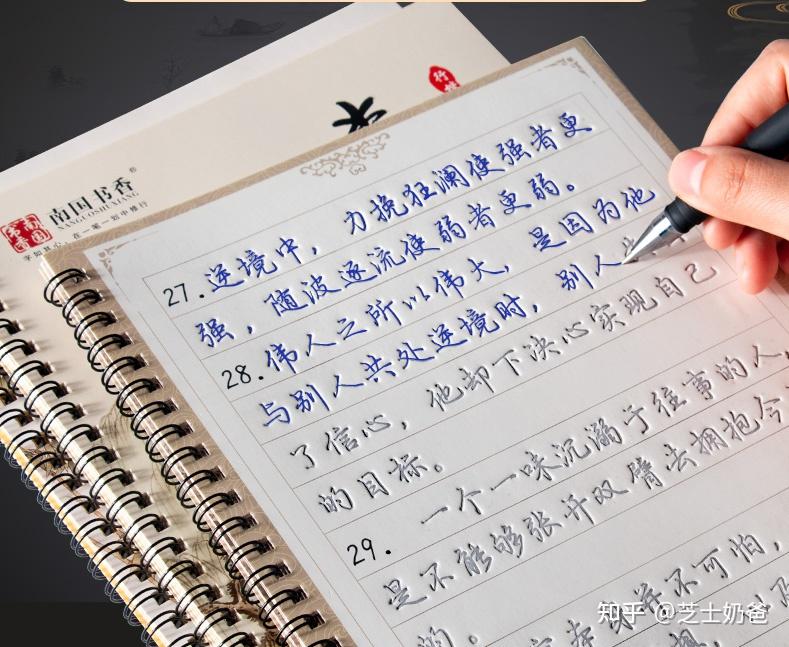 南国书香
NANGUOSHUXIANG
字如其心，在一笔一划中修行
南国
书香
27. 逆境中，力挽狂澜使强者更
强，随波逐流使弱者更弱。
28. 伟人之所以伟大，是因为他
与别人共处逆境时，别人
了信心，他却下决心实现自己
的目标。
29. 一个一味沉溺于往事的人，
是不能够张开双臂去拥抱今
不可怕，
的。
知乎 @芝士奶爸